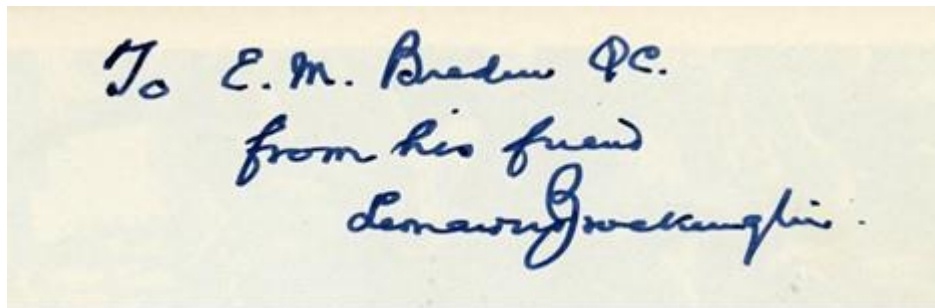 To E. M. Bredin QC.
from his friend
Leonard Brockington.